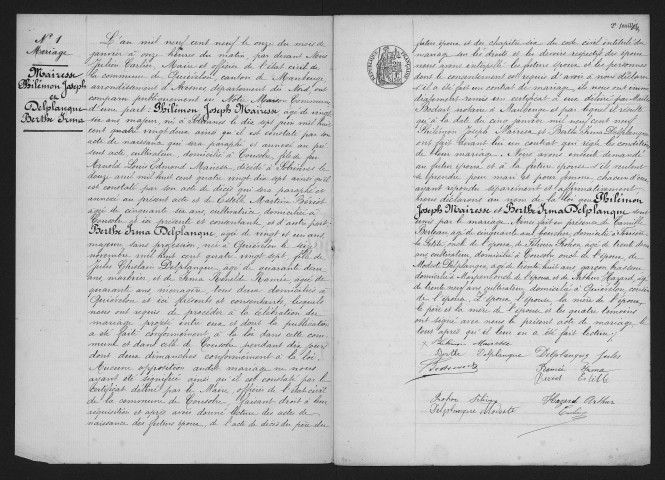 N° 1
Mariage
Mairesse
Philémon Joseph
et
Delplanque
Berthe Irma
L'an mil neuf cent neuf le onze du mois de
janvier à onze heures du matin, par devant Nous
Carlier, Maire et officier de l'état civil de
la commune de Quiévelon, canton de Maubeuge
arrondissement d'Avesnes département du Nord, ont
comparu publiquement en Notre Maison Commune
d'une part Philémon Joseph Mairesse âgé de vingt
six ans majeur, né à le dix sept juin mil huit
cent quatre vingt deux ainsi qu'il est constaté par son
acte de naissance qui sera paraphé et annexé au pré
sent acte cultivateur, domicilié à Consolre, fils de feu
Arnold Louis Edmond Mairesse, décédé à le
douze avril mil huit cent quatre vingt dix sept ainsi qu'il
est constaté par son acte de décès qui sera paraphé et
annexé au présent acte et de Estelle Martine
âgée de cinquante six ans, cultivatrice, domiciliée à
Consolre ici présente et consentante, et d'autre part
Berthe Irma Delplanque, âgée de vingt et un ans
majeure sans profession, née à Quiévelon le six
novembre mil huit cent quatre vingt sept, fille de
Jules Ghislain Delplanque âgé de quarante
ans, marbrier, et de Irma Ramée âgée de
quarante ans ménagère, tous deux domiciliés à
Quiévelon et ici présents et consentants, lesquels
nous ont requis de procéder à la célébration du
mariage projeté entre eux et dont la publication
a été faite conformément à la loi dans cette com
mune et dans celle de Consolre pendant dix jours
dont deux dimanches conformément à la loi.
Aucune opposition audit mariage ne nous
ayant été signifiée ainsi qu'il est constaté par le
certificat délivré par le Maire, officier de l'état civil
de la commune de Consolre, faisant droit à leur
réquisition et après avoir donné lecture des actes de
naissance des futurs époux, de l'acte de décès du père du
2e feuillet
futur époux et du chapitre six du code civil intitulé du
mariage sur les droits et les devoirs respectifs des époux
nous avons interpellé les futurs époux et les personnes
dont le consentement est requis d'avoir à nous déclarer
s'il a été fait un contrat de mariage. Ils nous ont immé
diatement remis un certificat à eux délivré par Maître
notaire à Maubeuge et par lequel il résulte
qu'à la date du cinq janvier mil neuf cent neuf
Philémon Joseph Mairesse et Berthe Irma Delplanque
ont fait devant lui un contrat qui règle les conditions
de leur mariage. Nous avons ensuite demandé
au futur époux et à la future épouse s'ils veulent
se prendre pour mari et pour femme, chacun d'eux
ayant répondu séparément et affirmativement
Nous déclarons au nom de la loi que Philémon
Joseph Mairesse et Berthe Irma Delplanque sont
unis par le mariage. Ainsi fait en présence de Camille
âgé de cinquante ans boucher, domicilié à
oncle de l'épouse, de âgé de trente neuf
ans cultivateur, domicilié à Consolre oncle de l'époux, de
Modeste Delplanque, âgé de trente huit ans garçon brasseur
domicilié à oncle de l'épouse et de Arthur Hazard âgé
de trente neuf ans cultivateur, domicilié à Quiévelon cousin
de l'époux. L'époux, l'épouse, la mère de l'époux,
le père et la mère de l'épouse et les quatre témoins
ont signé avec nous le présent acte de mariage le
tout après qu'il leur en a été fait lecture.
Philémon Mairesse
Berthe Delplanque Delplanque Jules
Ramée Irma
Estelle
Delplanque Modeste
Hazard Arthur
Carlier